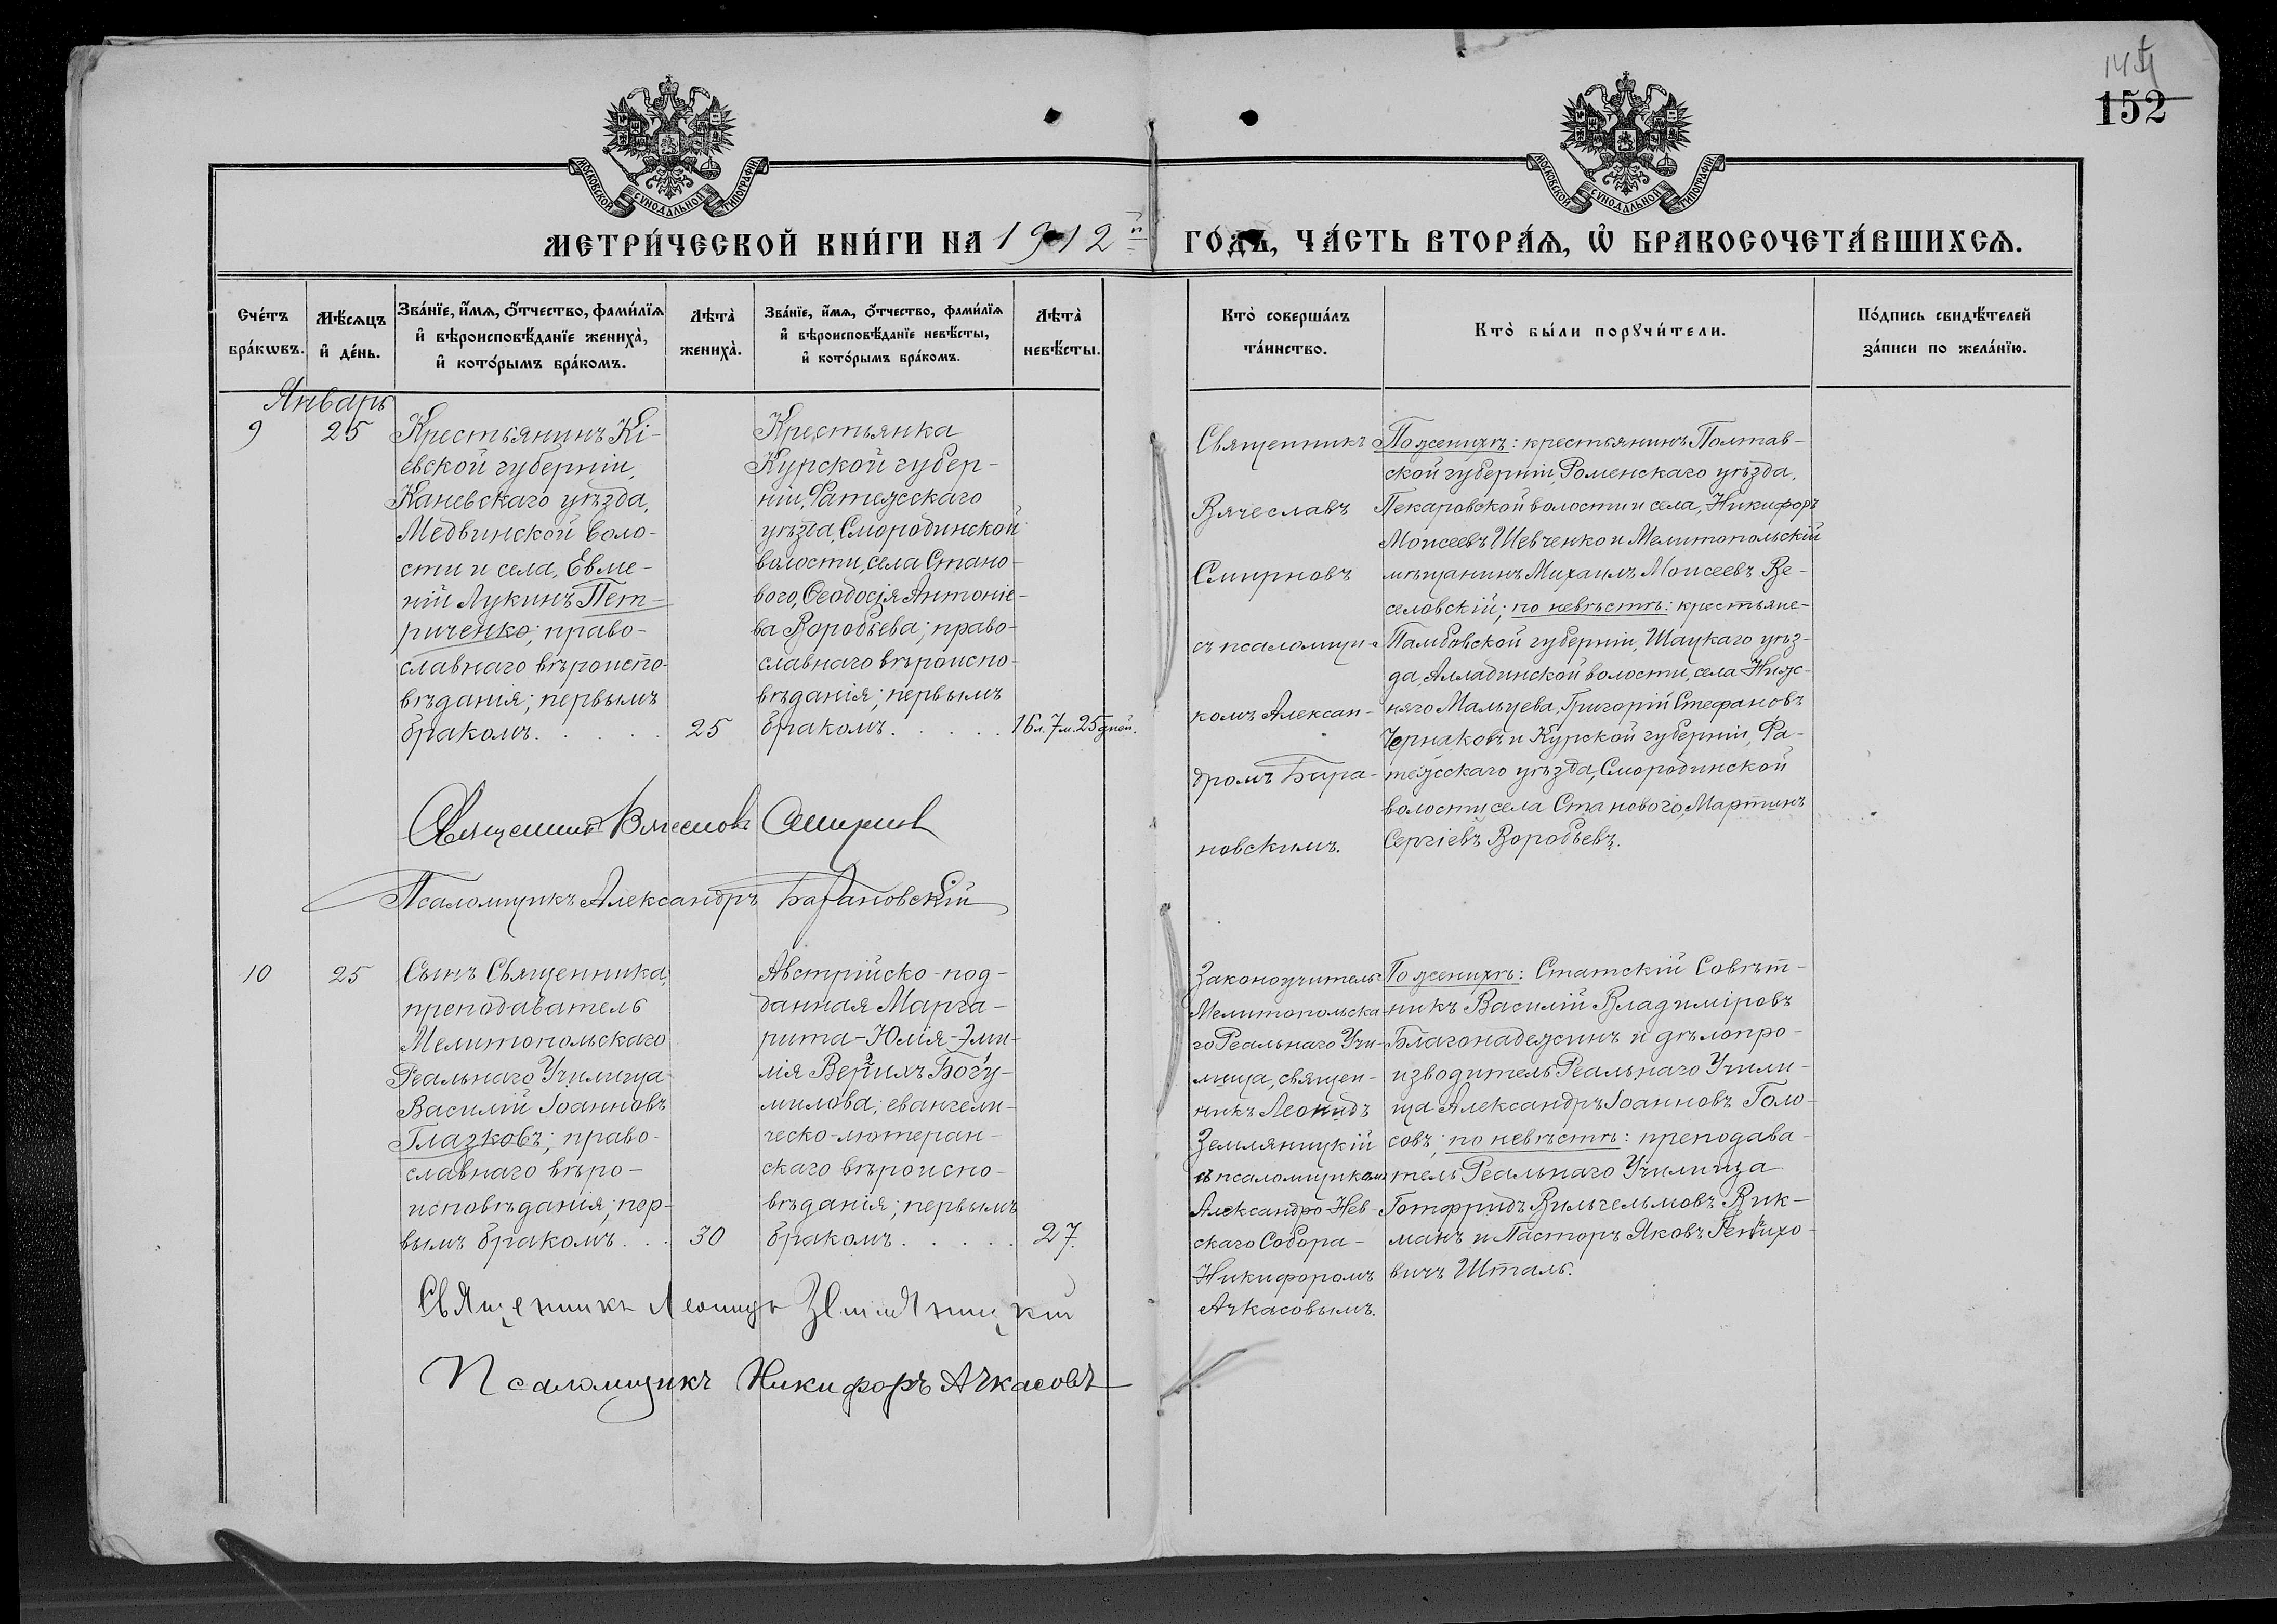 144
152
МОСКОВСКОЙ СѴНОДАЛЬНОЙ ТИПОГРАФІИ
МОСКОВСКОЙ СѴНОДАЛЬНОЙ ТИПОГРАФІИ
МЕТРИ́ЧЕСКОЙ КНИ́ГИ НА 1912й ГО́ДЪ, ЧА́СТЬ ВТОРА́Ѧ, Ѡ҆ БРАКОСОЧЕТА́ВШИХСѦ.
Сче́тъ
бра́кѡвъ.
Мѣ́сѧцъ
и҆ де́нь.
Зва́нїе, и҆́мѧ, о҆́тчество, фами́лїѧ
и҆ вѣроисповѣ́данїе жениха̀,
и҆ кото́рымъ бра́комъ.
Лѣта̀
жениха̀.
Зва́нїе, и҆́мѧ, о҆́тчество, фами́лїѧ
и҆ вѣроисповѣ́данїе невѣ́сты,
и҆ кото́рымъ бра́комъ.
Лѣта̀
невѣ́сты.
Кто̀ соверша́лъ
та́инство.
Кто̀ бы́ли порꙋчи́тели.
По́дпись свидѣ́телей
за́писи по жела́нїю.
Январь
9
25
Крестьянинъ Кі-
евской губерніи,
Каневскаго уѣзда,
Медвинской воло-
сти и села, Евме-
ній Лукинъ Пет-
риченко; право-
славнаго вѣроиспо-
вѣданія; первымъ
бракомъ. . . . .
25
Крестьянка
Курской губер-
ніи, Фатежскаго
уѣзда, Смородинской
волости, села Стано-
вого, Ѳеодосія Антоніе-
ва Воробьева; право-
славнаго вѣроиспо-
вѣданія; первымъ
бракомъ. . . . .
16 л. 7 м. 25 дней.
Священникъ
Вячеславъ
Смирновъ
съ псаломщи-
комъ Алексан-
дромъ Бара-
новскимъ.
По женихѣ: крестьянинъ Полтав-
ской губерніи, Роменскаго уѣзда,
Пекаровской волости и села, Никифоръ
Моисеевъ Шевченко и Мелитопольскій
мѣщанинъ Михаилъ Моисеевъ Ве-
селовскій; по невѣстѣ: крестьяне-
Тамбовской губерніи, Шацкаго уѣз-
да, Алладинской волости, села Ниж-
няго Мальцева, Григорій Стефановъ
Чернаковъ и Курской губерніи, Фа-
тежскаго уѣзда, Смородинской
волости, села Станового, Мартинъ
Сергіевъ Воробьевъ.
Священникъ Вячеславъ Смирнов
Псаломщикъ Александръ Барановскій
10
25
Сынъ Священника,
преподаватель
Мелитопольскаго
Реальнаго Училища
Василій Іоанновъ
Глазковъ; право-
славнаго вѣро-
исповѣданія; пер-
вымъ бракомъ. . .
30
Австрійско-под-
данная Марга-
рита-Юлія-Эми-
лія Верихъ Богу-
милова; евангели-
ческо-лютеран-
скаго вѣроиспо-
вѣданія; первымъ
бракомъ. . . . .
27.
Законоучитель
Мелитопольска-
го Реальнаго Учи-
лища, священ-
никъ Леонидъ
Земляницкій
съ псаломщикомъ
Александро-Нев-
скаго Собора-
Никифоромъ
Ачкасовымъ.
По женихѣ: Статскій Совѣт-
никъ Василій Владиміровъ
Благонадежинъ и дѣлопро-
изводитель Реальнаго Учили-
ща Александръ Іоанновъ Голо-
совъ; по невѣстѣ: преподава-
тель Реальнаго Училища
Готфридъ Вильгельмовъ Вик-
манъ и Пасторъ Яковъ Генрихо-
вичъ Шталь.
Священникъ Леонидъ Земляницкій
Псаломщикъ Никифоръ Ачкасовъ